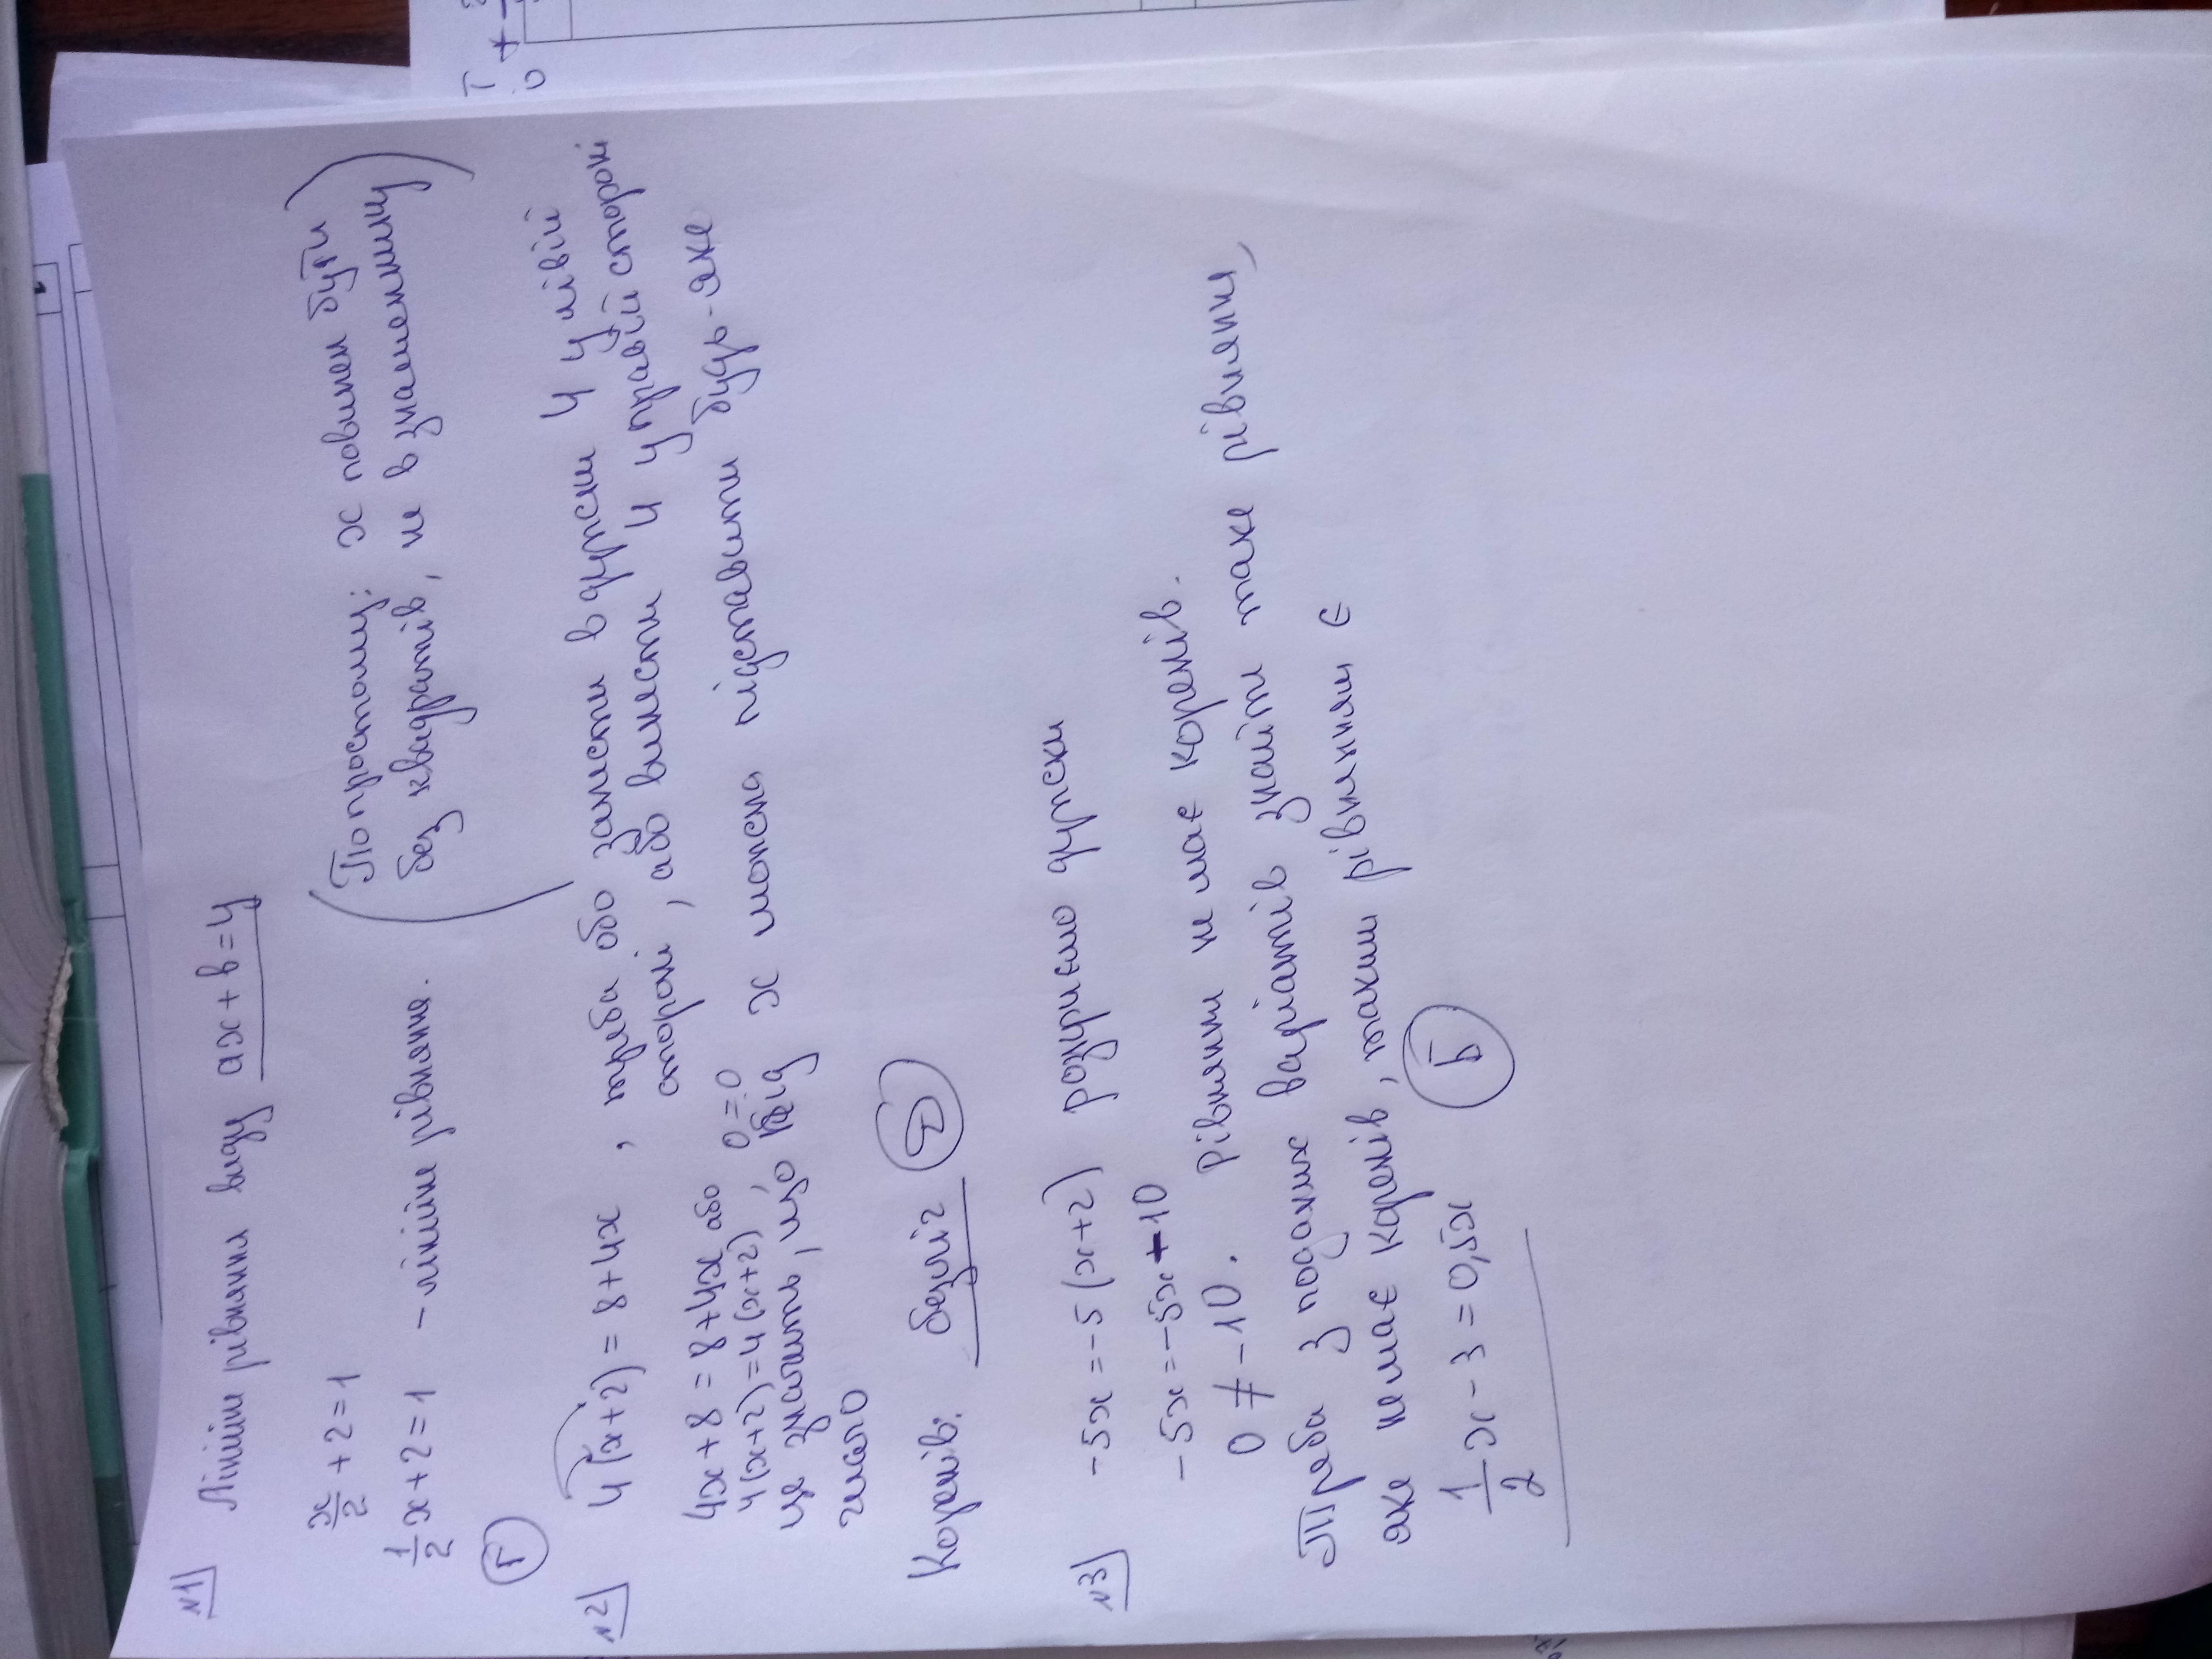 №1 Лінійні рівняння виду ax + b = y
x/2 + 2 = 1
(По простому: x повинен бути
1/2 x + 2 = 1 - лінійне рівняння.
без квадратів, не в знаменнику)
Г
№2 4(x+2) = 8 + 4x , треба або занести в дужки 4 у лівій
стороні, або винести 4 у правій стороні
4x + 8 = 8 + 4x або
4(x+2) = 4(x+2), 0 = 0
це значить, що під x можна підставити будь-яке
число
Коренів: безліч Д
№3 -5x = -5(x+2) розкриємо дужки
-5x = -5x - 10
0 ≠ -10. рівняння не має коренів.
Треба з поданих варіантів знайти таке рівняння,
яке не має коренів, таким рівнянням є
1/2 x - 3 = 0,5x Б